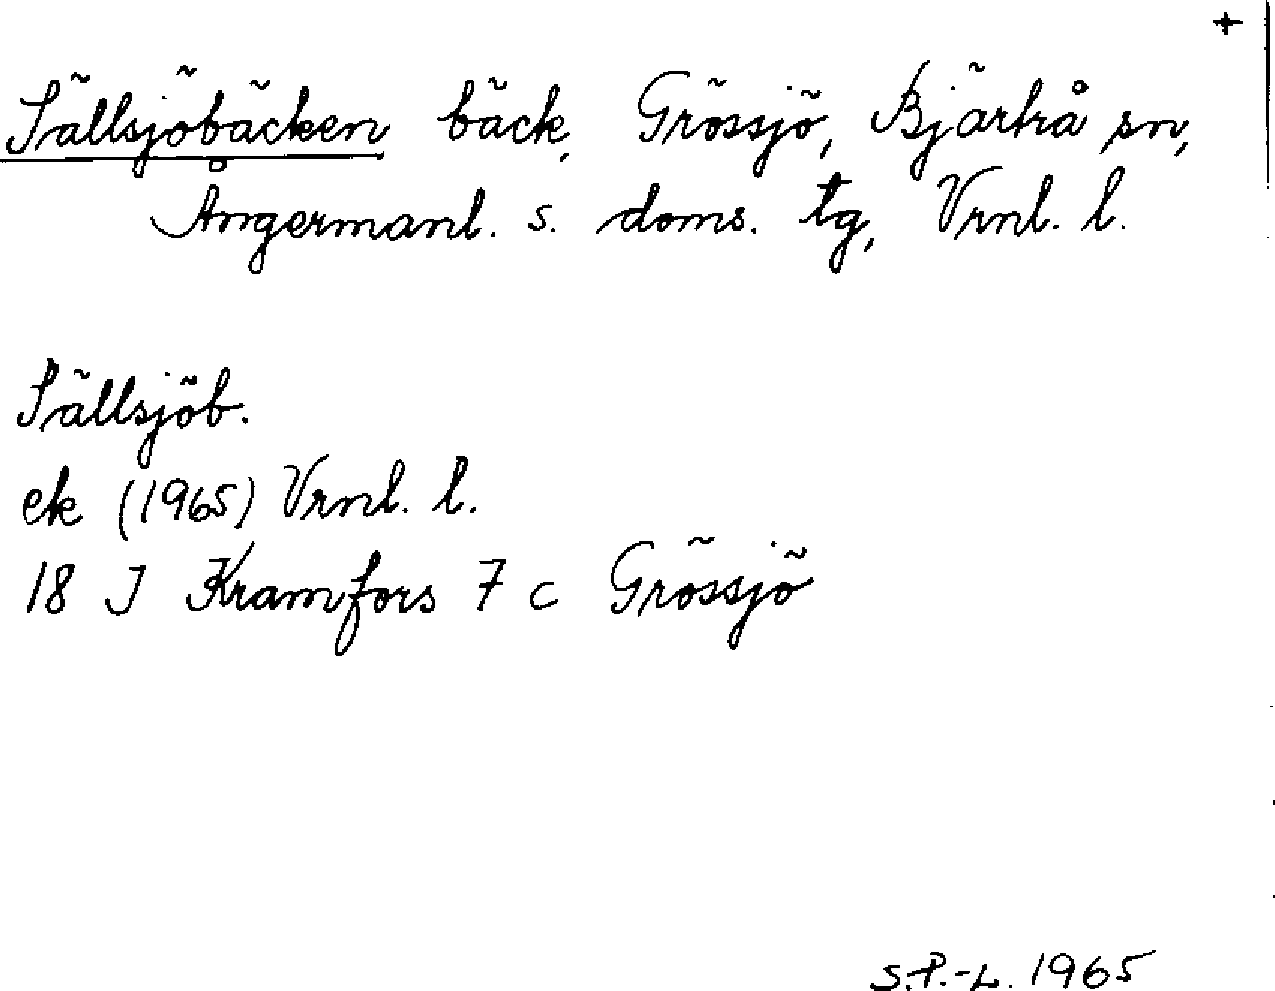 +
Sällsjöbäcken bäck, Grössjö, Bjärtrå sn,
Ångermanl. s. doms. tg, Vrnl. l.
Sällsjöb.
ek (1965) Vrnl. l.
18 J Kramfors 7 c Grössjö
S.P.-L. 1965